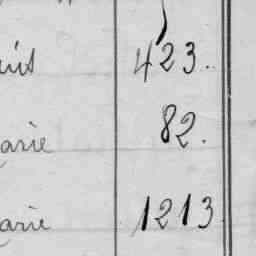 423.
arie 82.
arie 1213